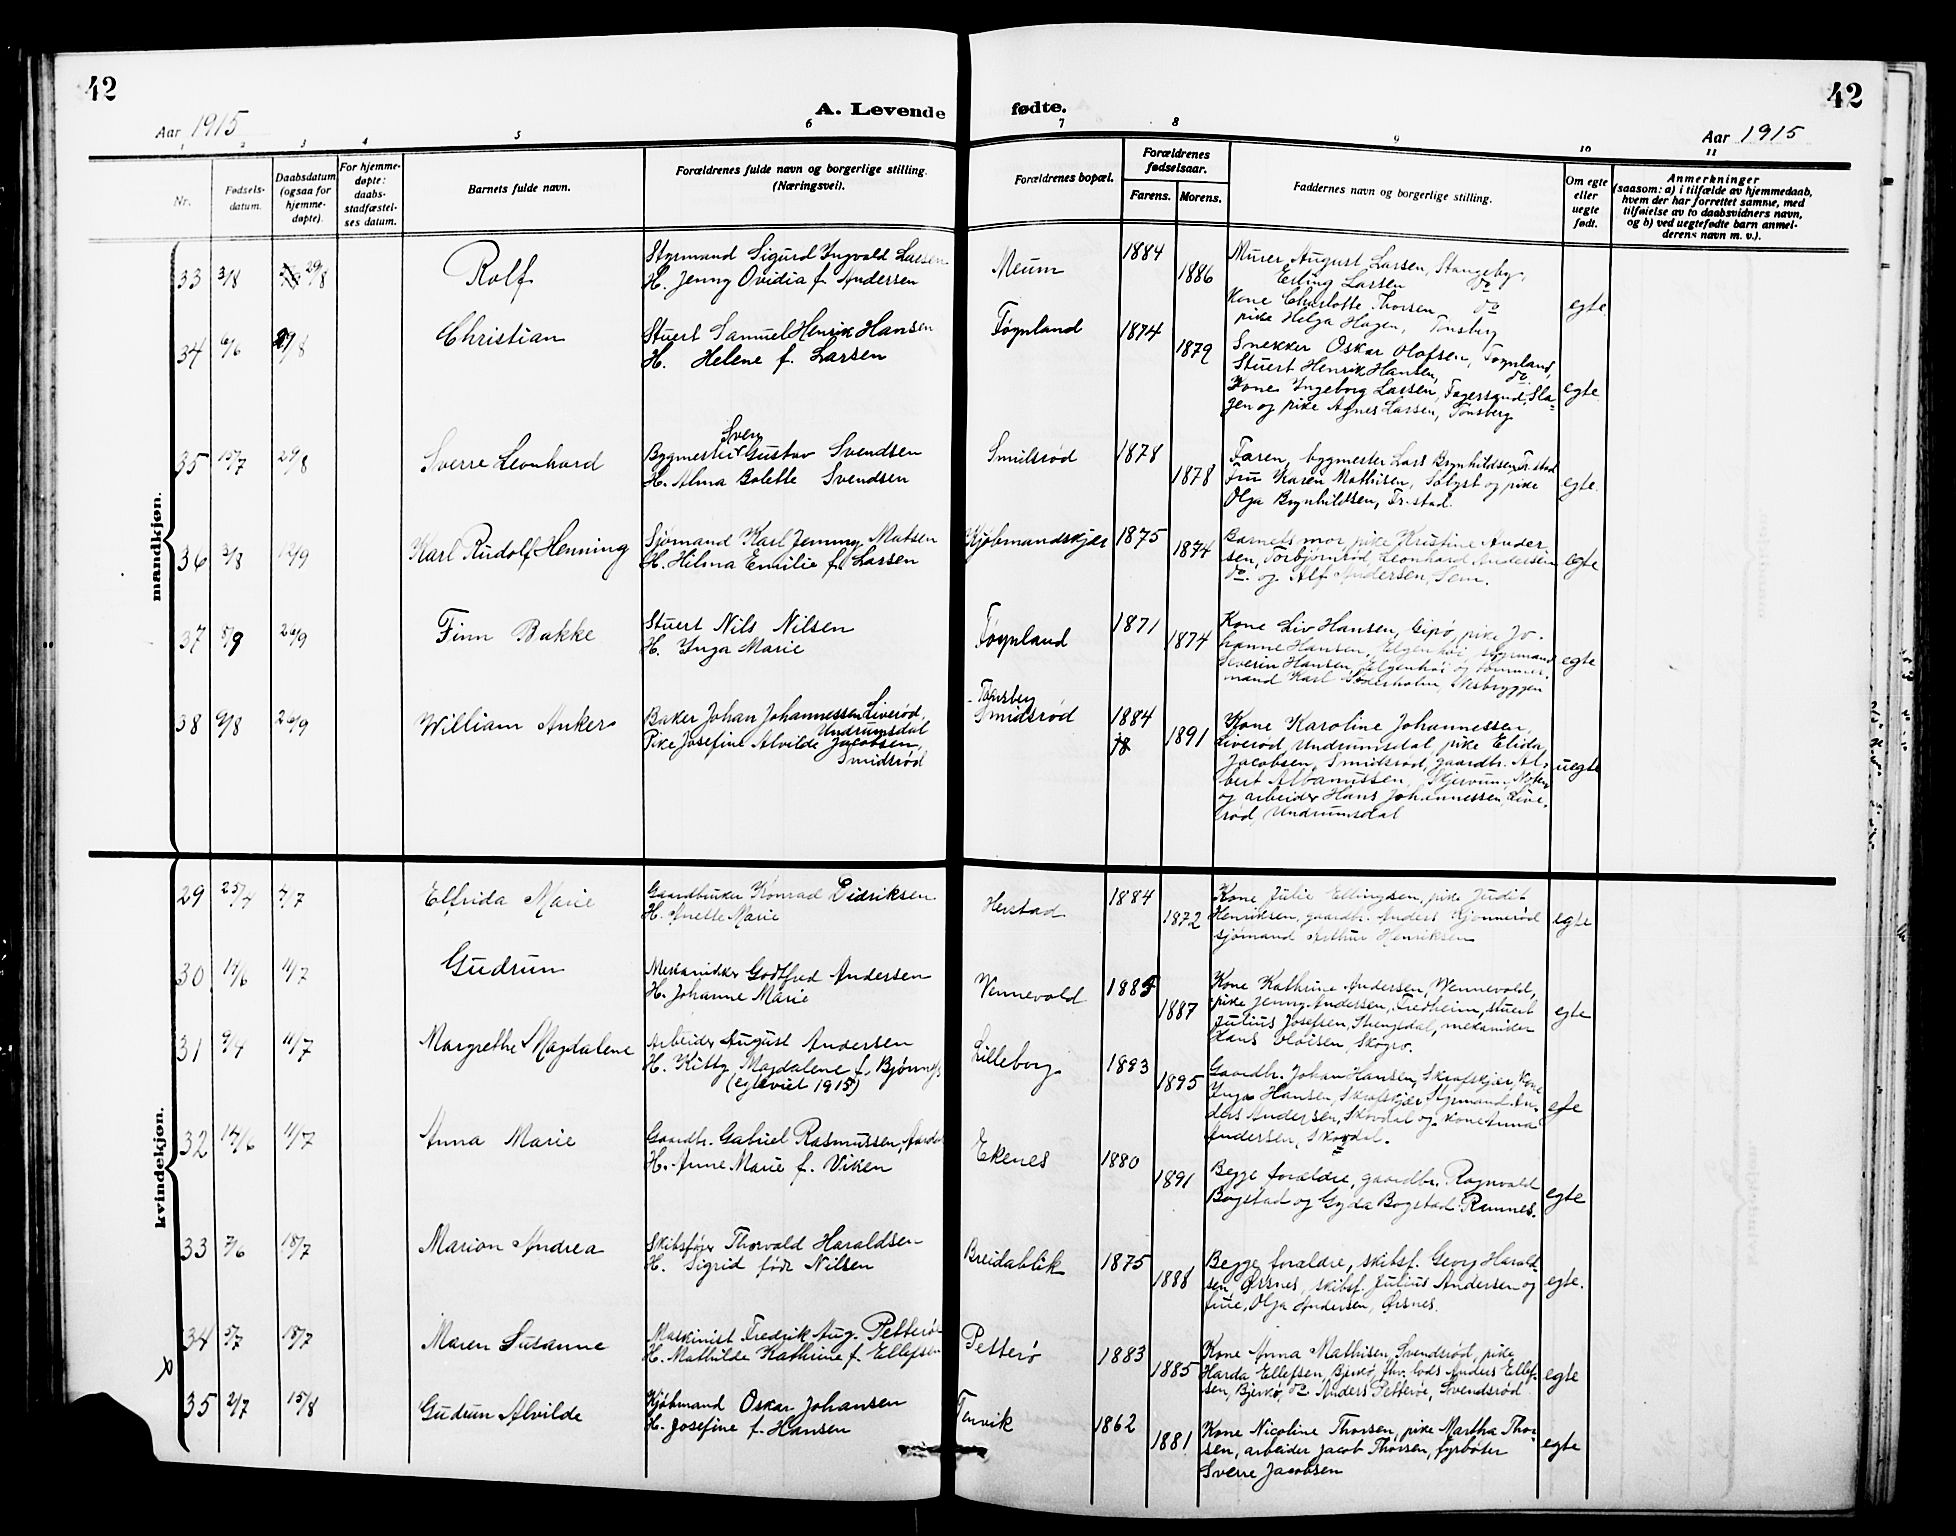 42
42
A. Levende fødte.
Aar 1915
Aar 1915
1 2 3 4 5 6 7 8 9 10 11
Nr.
Fødsels-
datum.
Daabsdatum
(ogsaa for
hjemme-
døpte).
For hjemme-
døpte:
daabs-
stadfæstel-
ses datum.
Barnets fulde navn.
Forældrenes fulde navn og borgerlige stilling.
(Næringsvei).
Forældrenes bopæl.
Forældrenes
fødselsaar.
Farens. Morens.
Faddernes navn og borgerlige stilling.
Om egte
eller
uegte
født.
Anmerkninger
(saasom: a) i tilfælde av hjemmedaab,
hvem der har forrettet samme, med
tilføielse av to daabsvidners navn,
og b) ved uegtefødte barn anmel-
derens navn m. v.).
mandkjøn.
33 3/8 29/8 Rolf
Styrmand Sigurd Ingvald Larsen
H. Jenny Ovidia f. Andersen
Meum 1884 1886
Murer August Larsen, Stangeby,
Erling Larsen do
Kone Charlotte Thorsen do
pike Helga Hagen, Tønsberg
egte
34 6/6 29/8 Christian
Stuert Samuel Henrik Hansen
H. Helene f. Larsen
Føynland 1874 1879
Snekker Oskar Olofsen, Føynland,
Stuert Henrik Hansen, do
Kone Ingeborg Larsen, Fagersand, Sla-
gen og pike Agnes Larsen, Tønsberg
egte
35 15/7 29/8 Sverre Leonhard
Sven
Bygmester Gustav Svendsen
H. Alma Bolette Svendsen
Smidsrød 1878 1878
Faren, bygmester Lars Brynhildsen, Fr.stad
Fru Karen Mathisen, og pike
Olga Brynhildsen, Fr.stad
egte
36 3/8 12/9 Karl Rudolf Henning
Sjømand Karl Jemmy Matsen
H. Hilma Emilie f. Larsen
Kjøbmandskjær 1875 1874
Barnets mor, pike Kristine Ander
sen, Torbjørnrød, Leonhard Andersen
do. og Alf Andersen, Sem.
egte
37 5/9 26/9 Finn Bakke
Stuert Nils Nilsen
H. Inga Marie
Føynland 1871 1874
Kone Liv Hansen, Gipø, pike Jo-
hanne Hansen, Elgenhøi, styrmand
Severin Hansen, Elgenhøi og tømmer-
mand Karl Søderholm,
egte
38 9/8 26/9 William Anker
Baker Johan Johannessen Liverød,
Undrumsdal
Pike Josefine Alvilde Jacobsen,
Smidsrød
Tønsberg
Smidsrød 1884 1891
Kone Karoline Johannessen,
Liverød, Undrumsdal, pike Elida
Jacobsen, Smidsrød, gaardbr. Al-
bert Albanussen, Skjerum,
og arbeider Hans Johannessen, Live-
rød, Undrumsdal
uegte
kvindekjøn.
29 25/4 4/7 Elfrida Marie
Gaardbruker Konrad Didriksen
H. Anette Marie
Herstad 1884 1872
Kone Julie Ellingsen, pike Judit
Henriksen, gaardbr. Anders Kjønnerød
sjømand Arthur Henriksen
egte
30 14/6 11/7 Gudrun
Mekaniker Godtfred Andersen
H. Johanne Marie
Vennevold 1885 1887
Kone Kathrine Andersen, Vennevold,
pike Jenny Andersen, Fredheim, stuert
Julius Josefsen, Stengsdal, mekaniker
Hans Skogro.
egte
31 9/4 11/7 Margrethe Magdalene
Arbeider August Andersen
H. Kitty Magdalene f. Bjørnø
(egteviet 1915)
Lilleborg 1893 1895
Gaardbr. Johan Hansen, Skrafskjær, kone
Inga Hansen, Skrafskjær, Styrmand An-
ders Andersen, Skovdal og kone Anna
Andersen, Skovdal.
ege
32 14/6 11/7 Anna Marie
Gaardbr. Gabriel Rasmussen,
H. Anne Marie f. Viken
Ekenes 1880 1891
Begge forældre, gaardbr. Ragnvald
Bogstad og Gyda Bogstad Ramnes.
egte
33 7/6 18/7 Marion Andrea
Skibsfører Thorvald Haraldsen
H. Sigrid født Nilsen
Breidablik 1875 1888
Begge forældre, skibsf. Georg Harald-
sen, Ørsnes, skibsf. Julius Andersen og
frue, Olga Andersen, Ørsnes.
egte.
34 5/7 18/7 Maren Susanne
Maskinist Fredrik Aug. Petterøe
H. Mathilde Kathrine f. Ellefsen
Petterø 1883 1885
Kone Anna Mathisen, Svendsrød, pike
Harda Ellefsen, Bjerkø, fhv. lods Anders Ellef-
sen, Bjerkø, do Anders Petterøe, Svendsrød
egte
35 2/7 15/8 Gudrun Alvilde
Kjøbmand Oskar Johansen
H. Josefine f. Hansen
Tenvik 1862 1881
Kone Nicoline Thorsen, pike Martha Thor-
sen, arbeider Jacob Thorsen, fyrbøter
Sverre Jacobsen
egte